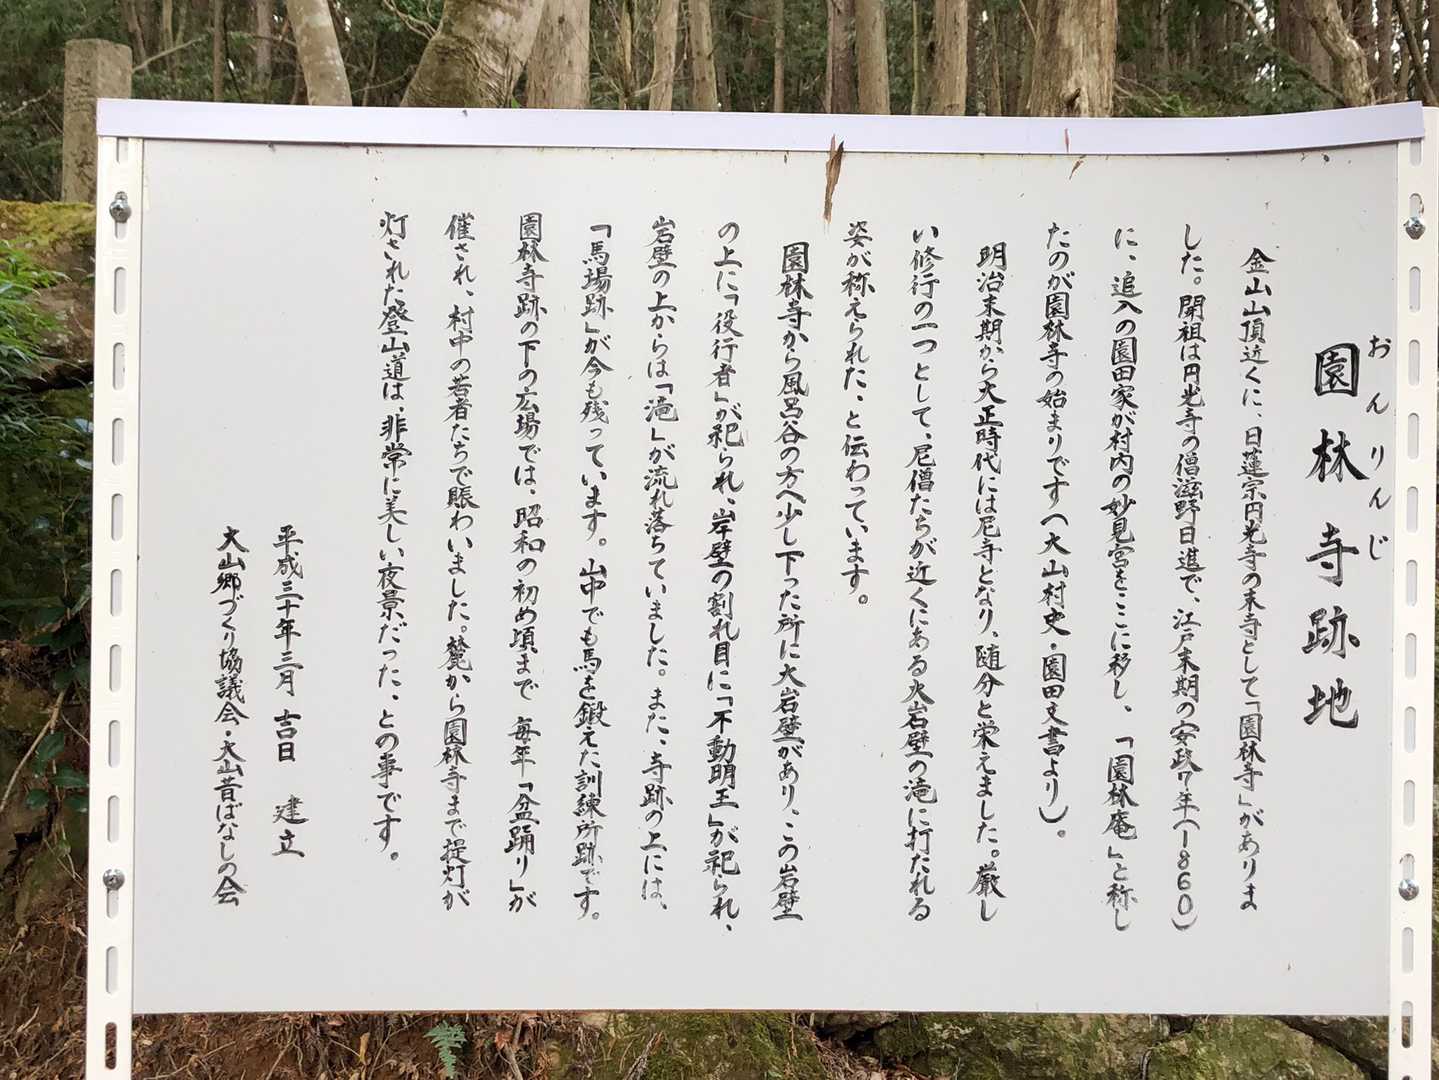 おんりんじ
園林寺跡地
金山山頂近くに、日蓮宗円光寺の末寺として「園林寺」がありま
した。開祖は円光寺の僧滋野日進で、江戸末期の安政7年(1860)
に、追入の園田家が村内の妙見宮をここに移し、「園林庵」と称し
たのが園林寺の始まりです(大山村史・園田文書より)。
明治末期から大正時代には尼寺となり、随分と栄えました。厳し
い修行の一つとして、尼僧たちが近くにある大岩壁の滝に打たれる
姿が称えられた、と伝わっています。
園林寺から風呂谷の方へ少し下った所に大岩壁があり、この岩壁
の上に「役行者」が祀られ、岸壁の割れ目に「不動明王」が祀られ、
岩壁の上からは「滝」が流れ落ちていました。また、寺跡の上には、
「馬場跡」が今も残っています。山中でも馬を鍛えた訓練所跡です。
園林寺跡の下の広場では、昭和の初め頃まで毎年「盆踊り」が
催され、村中の若者たちで賑わいました。麓から園林寺まで提灯が
灯された登山道は、非常に美しい夜景だった、との事です。
平成三十年三月吉日 建立
大山郷づくり協議会・大山昔ばなしの会